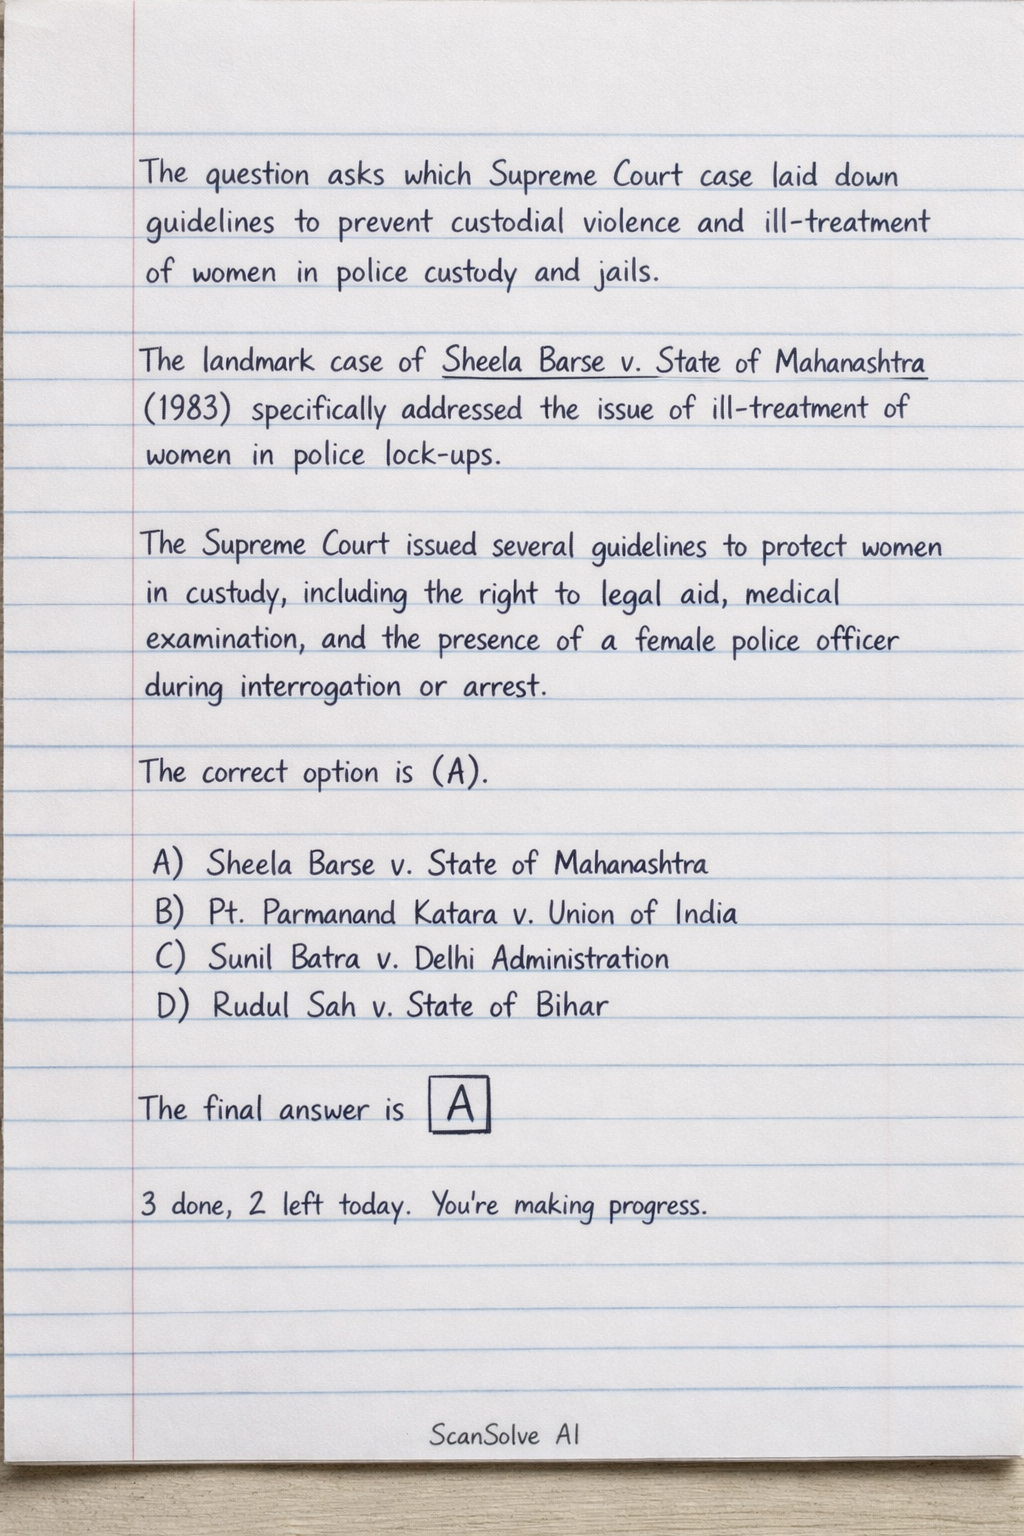 The question asks which Supreme Court case laid down
guidelines to prevent custodial violence and ill-treatment
of women in police custudy and jails.
The landmark case of Sheela Barse v. State of Mahanashtra
(1983) specifically addressed the issue of ill-treatment of
women in police lock-ups.
The Supreme Court issued several guidelines to protect women
in custudy, including the right to legal aid, medical
examination, and the presence of a female police officer
during interrogation or arrest.
The correct option is (A).
A) Sheela Barse v. State of Mahanashtra
B) Pt. Parmanand Katara v. Union of India
C) Sunil Batra v. Delhi Administration
D) Rudul Sah v. State of Bihar
The final answer is A
3 done, 2 left today. You're making progress.
ScanSolve AI